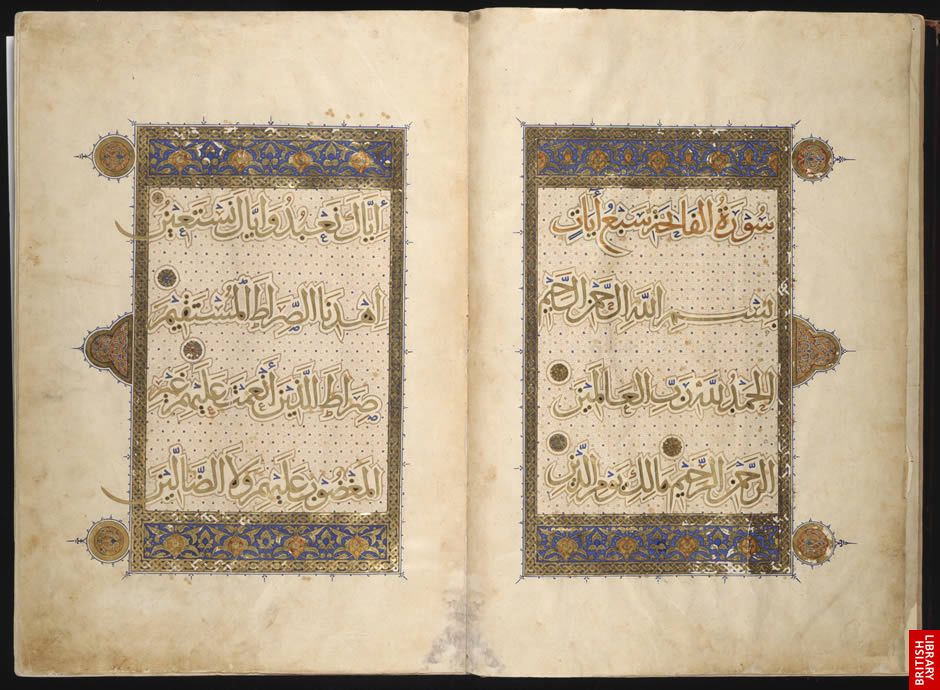 سُورَةُ الفَاتِحَة سَبْعُ أيَاتٍ
بِسْمِ اللهِ الرَّحْمنِ الرَّحِيمِ
الحَمْدُ للهِ رَبِّ العَالَمِينَ
الرَّحْمنِ الرَّحِيمِ مَالِكِ يَوْمِ الدِّينِ
أيَّاكَ نَعْبُدُ وَأيَّاكَ نَسْتَعِينُ
اهْدِنَا الصِّرَاطَ المُسْتَقِيمَ
صِرَاطَ الَّذِينَ أَنْعَمْتَ عَلَيْهِمْ غَيْرِ
المَغْضُوبِ عَلَيْهِمْ وَلَا الضَّالِّينَ
BRITISH
LIBRARY